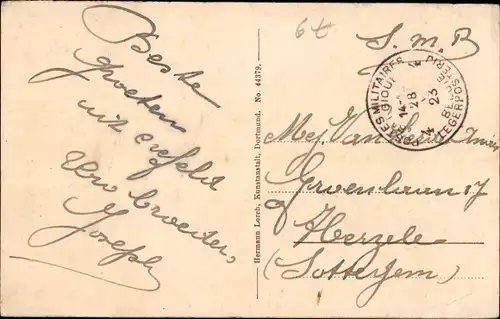 Beste
groeten
uit Crefeld
Uw broeder
Joseph
Hermann Lorch, Kunstanstalt, Dortmund. No. 44379.
6t
S.M.B
POSTES MILITAIRES BELGIQUE
LEGERPOSTERIJ BELGIE
14-
28
4
23
Mej Van
Groenlaan 17
Herzele
(Sottegem)